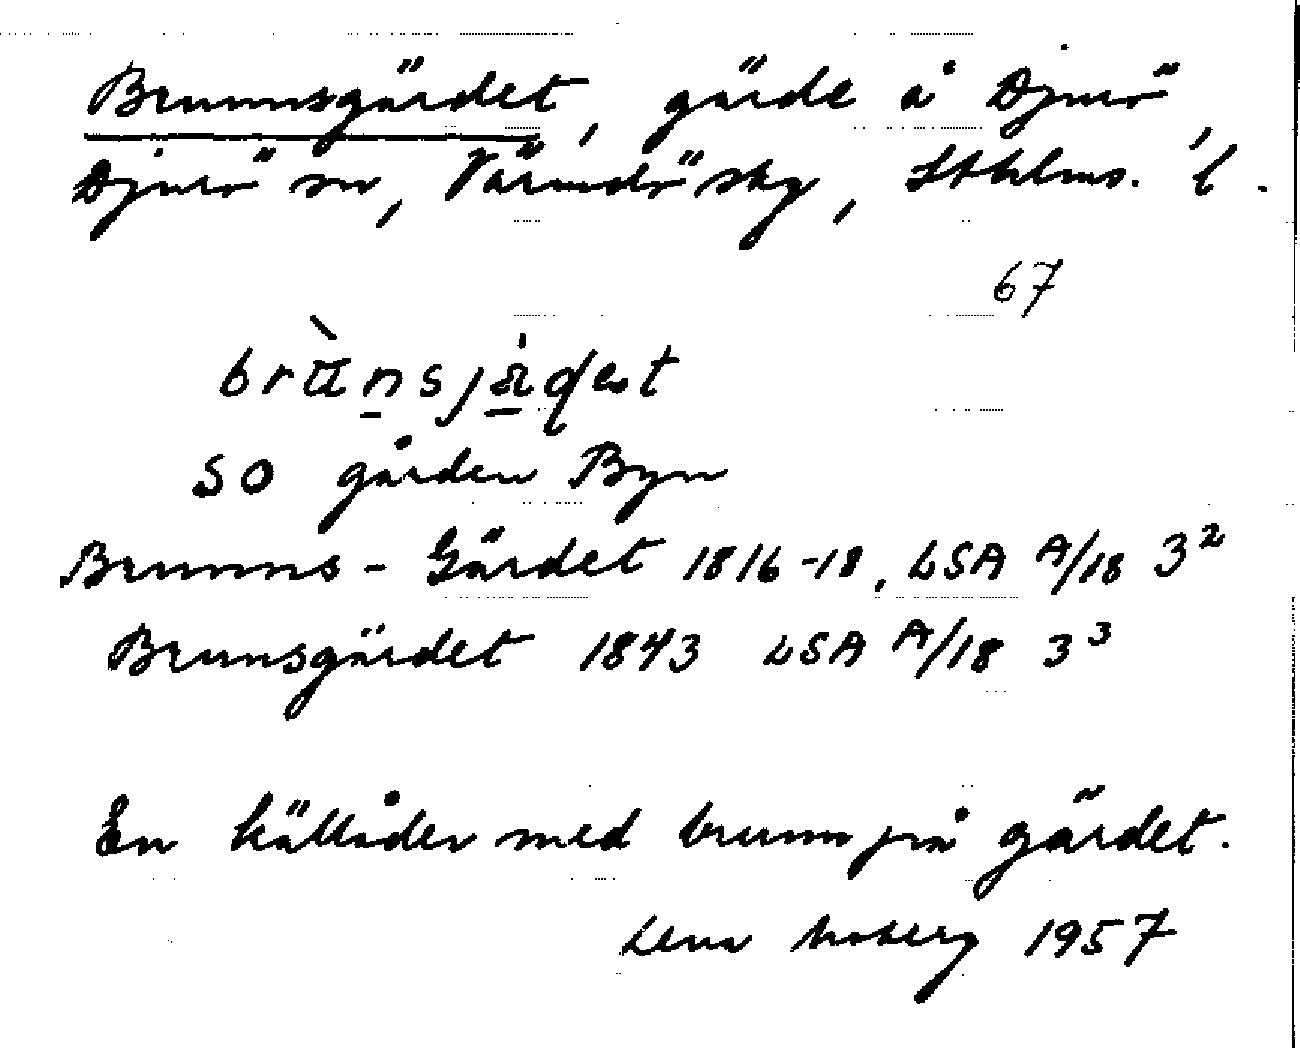 Brunnsgärdet, gärde å Djurö,
Djurö sn, Värmdö sky, Sthlms. l.
67
SO gården Byn
Brunns-Gärdet 1816-18, LSA A/18 3²
Brunsgärdet 1843 LSA A/18 3³
En källåder med brunn på gärdet.
Lena Moberg 1957